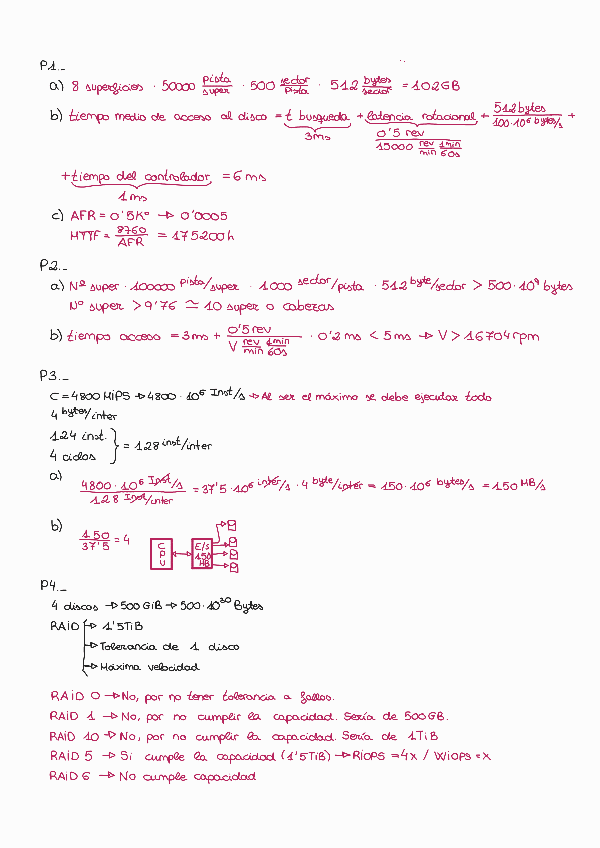 P1._
a) 8 superficies · 50000 pista/super · 500 sector/pista · 512 bytes/sector = 102GB
b) tiempo medio de acceso al disco = t busqueda + latencia rotacional + 512 bytes/100·10⁶ bytes/s +
3ms 0'5 rev / 15000 rev/min 1min/60s
+ tiempo del controlador = 6 ms
1 ms
c) AFR = 0'5%  → 0'0005
MTTF = 8760/AFR = 175200h
P2._
a) Nº super · 100000 pista/super · 1000 sector/pista · 512 byte/sector > 500·10⁹ bytes
Nº super > 9'76 ≃ 10 super o cabezas
b) tiempo acceso = 3ms + 0'5 rev / V rev/min 1min/60s · 0'2 ms < 5ms → V > 16704 rpm
P3._
C = 4800 MiPS → 4800 · 10⁶ Inst/s → Al ser el máximo se debe ejecutar todo
4 bytes/inter
124 inst.
4 ciclos } = 128 inst/inter
a) 4800 · 10⁶ Inst/s / 128 Inst/inter = 37'5 · 10⁶ inter/s · 4 byte/inter = 150·10⁶ bytes/s = 150 MB/s
b) 150/37'5 = 4
CPU E/S 150 MB
P4._
4 discos → 500 GiB → 500·10³⁰ Bytes
RAiD → 1'5TiB
→ Tolerancia de 1 disco
→ Máxima velocidad
RAiD 0 → No, por no tener tolerancia a fallos.
RAiD 1 → No, por no cumplir la capacidad. Sería de 500GB.
RAiD 10 → No, por no cumplir la capacidad. Sería de 1TiB
RAiD 5 → Si cumple la capacidad (1'5TiB) → RiOPS = 4x / WiOPS = x
RAiD 6 → No cumple capacidad